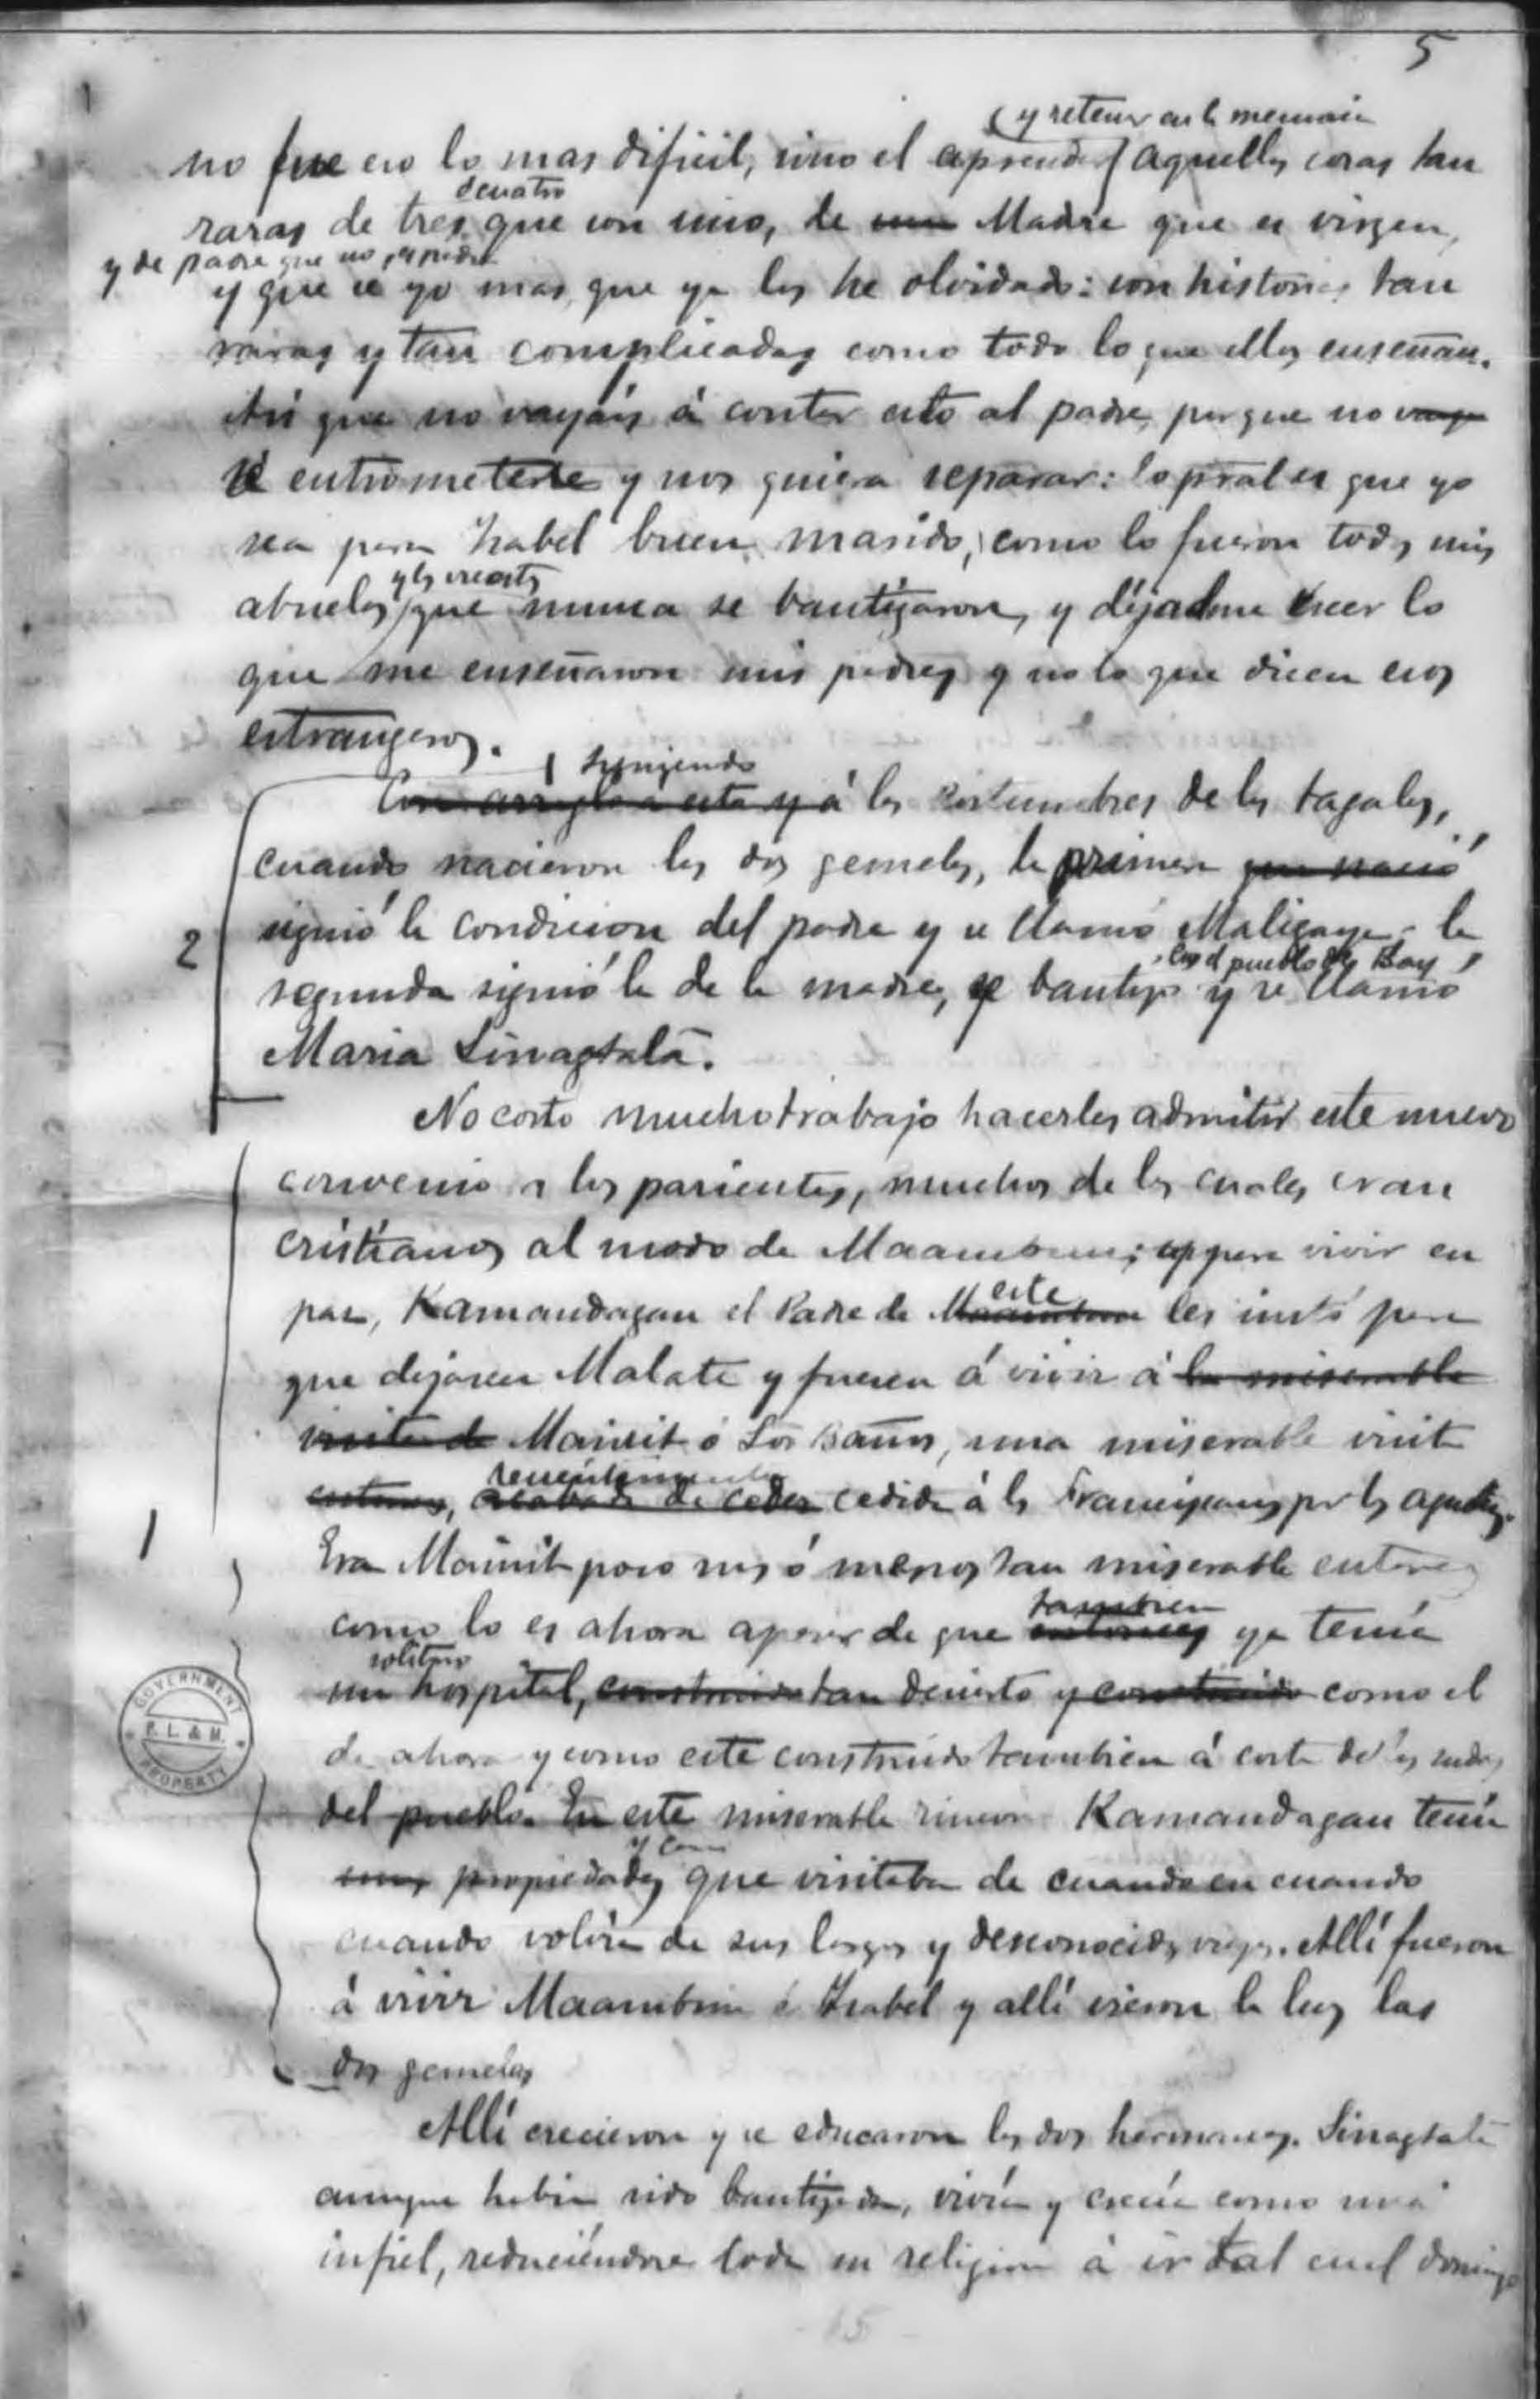 5
y retener en la memoria
no fue eso lo mas dificil, sino el aprender aquellas cosas tan
de cuatro
raras de tres que son uno, de una Madre que es virgen,
y de padre que no es padre
y que se yo mas, que ya las he olvidado: son historias tan
raras y tan complicadas como todo lo que ellos enseñan.
Asi que no vayáis á contar esto al padre, porque no vaya
á entrometerse y nos quiera separar: lo pral es que yo
sea para Isabel buen marido, como lo fueron todos mis
abuelos que nunca se bautizaron, y dejadme creer lo
que me enseñaron mis padres y no lo que dicen esos
estrangeros.
Siguiendo
Con arreglo a esto y á las costumbres de los tagalos,
cuando nacieron las dos gemelas, la primera que nació
siguió la condicion del padre y se llamó Maligaya; la
en el pueblo de Bay
2
segunda siguió la de la madre, se bautizo y se llamó
Maria Sinagtala.
No costo mucho trabajo hacerles admitir este nuevo
convenio a los parientes, muchos de los cuales eran
cristianos al modo de Maambun; para vivir en
este
paz, Kamandagan el Padre de Maambun les instó para
que dejasen Malate y fuesen á vivir á la miserable
visita de Mainit ó Los Baños, una miserable visita
recientemente
entonces, acabada de ceder cedida á los Franciscanos por los agustinos.
1
Era Mainit poco mas ó menos tan miserable entonces
tambien
como lo es ahora apesar de que entonces ya tenía
solitario
un hospital, construido tan desierto y construido como el
GOVERNMENT
P. L. & M.
PROPERTY
de ahora y como este construido tambien á costa de los sudores
del pueblo. En este miserable rincon Kamandagan tenía
y casa
unas propiedades que visitaba de cuando en cuando
cuando volvía de sus largos y desconocidos viajes. Allí fueron
á vivir Maambun é Isabel y allí vieron la luz las
dos gemelas
Allí crecieron y se educaron las dos hermanas. Sinagtala
aunque habia sido bautizada, vivía y creía como una
infiel, reduciéndose toda su religion á ir tal cual domingo